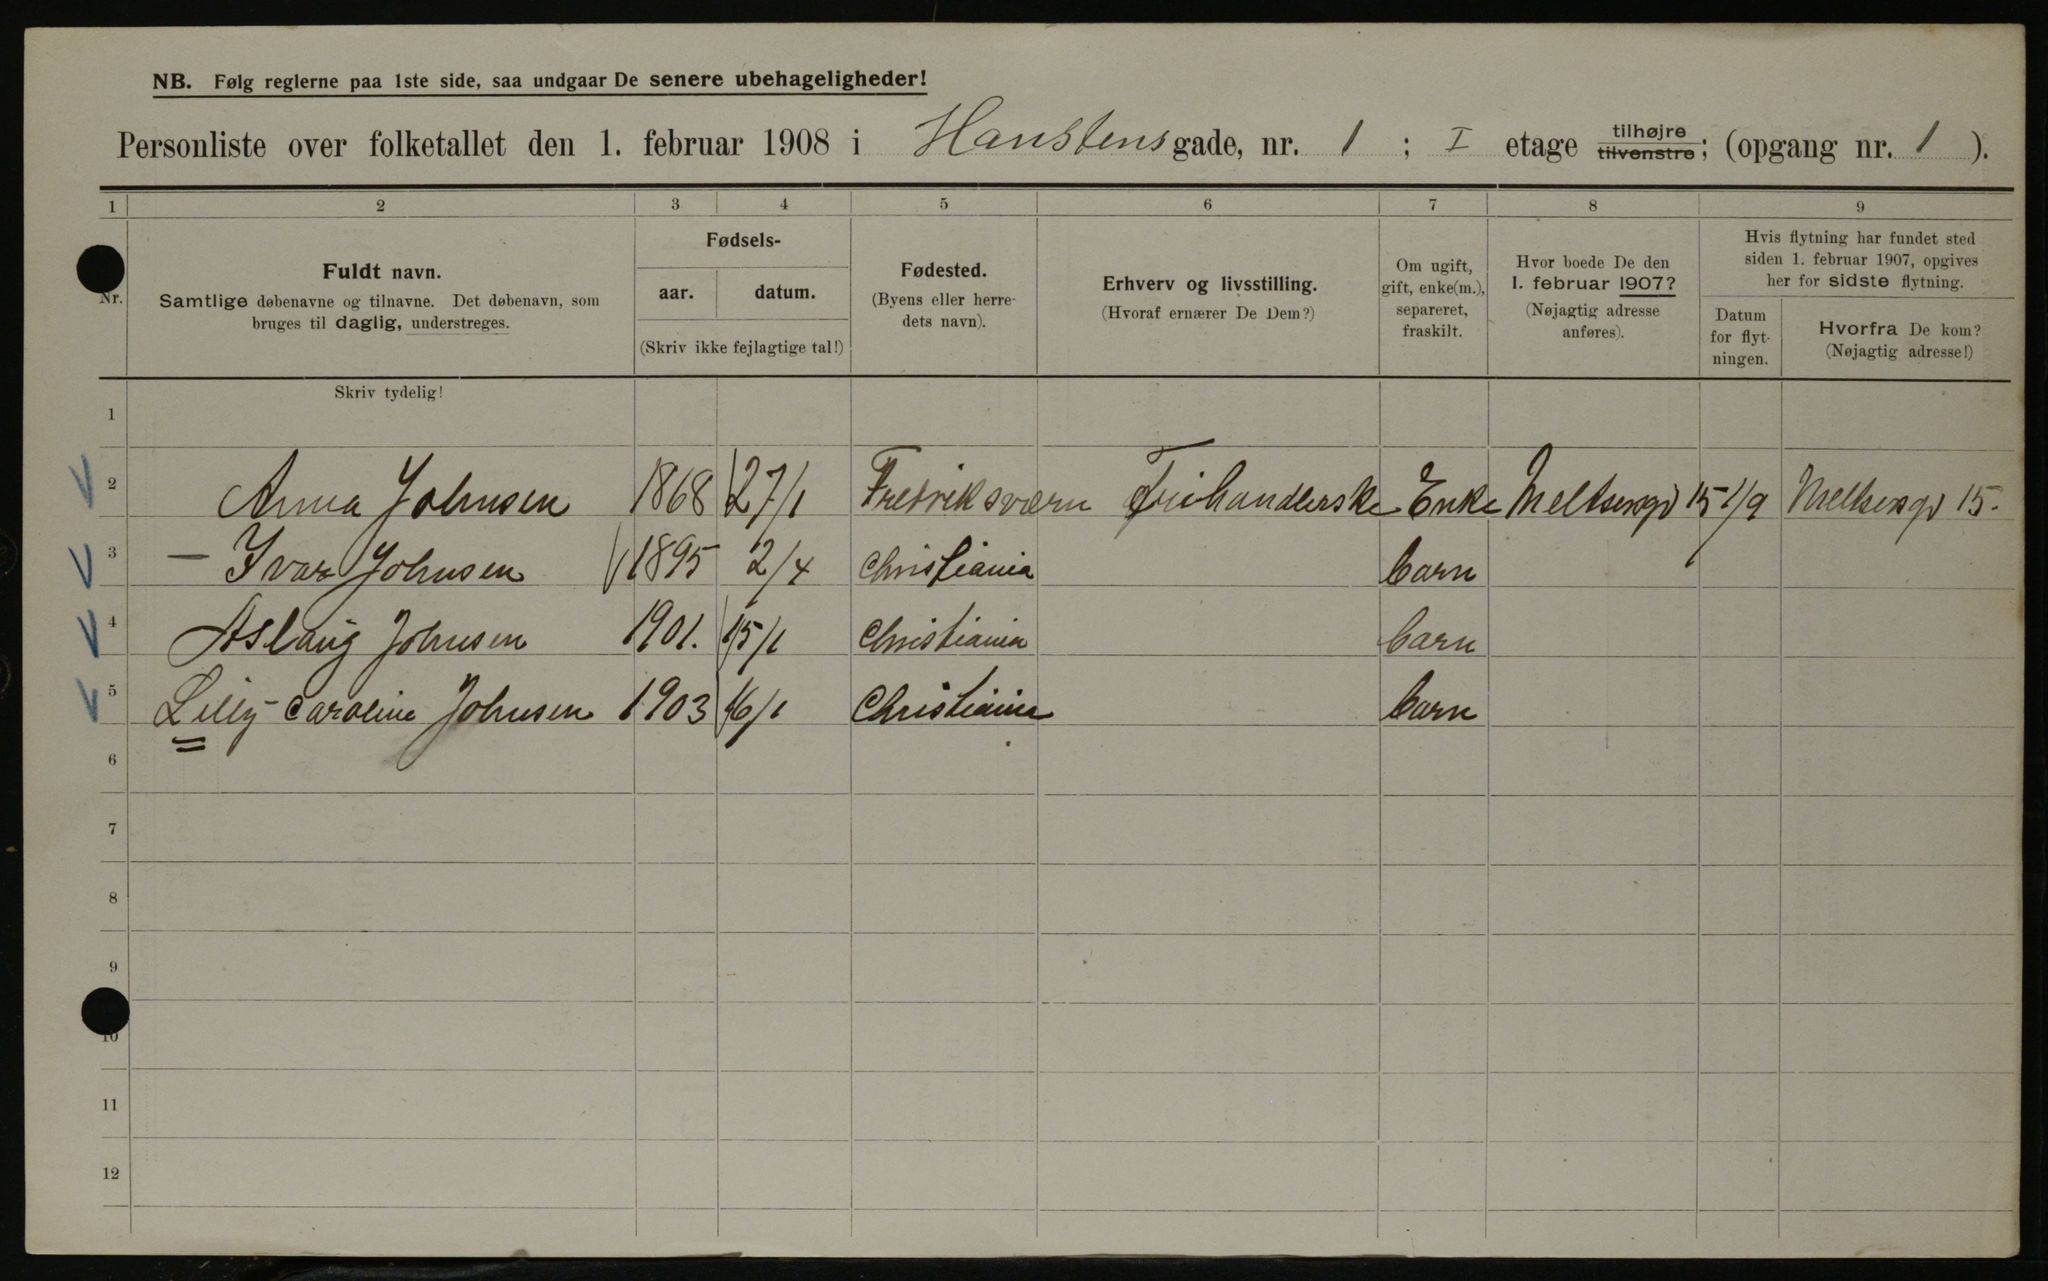 NB. Følg reglerne paa 1ste side, saa undgaar De senere ubehageligheder!
Personliste over folketallet den 1. februar 1908 i Hanstensgade, nr. 1 ; I etage tilhøjre tilvenstre; (opgang nr. 1 ).
1 2 3 4 5 6 7 8 9
Nr.
Fuldt navn.
Samtlige døbenavne og tilnavne. Det døbenavn, som
bruges til daglig, understreges.
Fødsels-
aar. datum.
(Skriv ikke fejlagtige tal!)
Fødested.
(Byens eller herre-
dets navn).
Erhverv og livsstilling.
(Hvoraf ernærer De Dem?)
Om ugift,
gift, enke(m.),
separeret,
fraskilt.
Hvor boede De den
1. februar 1907?
(Nøjagtig adresse
anføres).
Hvis flytning har fundet sted
siden 1. februar 1907, opgives
her for sidste flytning.
Datum
for flyt-
ningen.
Hvorfra De kom?
(Nøjagtig adresse!)
Skriv tydelig!
1
2 Anna Johnsen 1868 27/1 Fredriksværn Frihandlerske Enke Meltzersgd 15 1/9 Meltzersgd 15.
3 Ivar Johnsen 1895 2/4 Christiania barn
4 Aslaug Johnsen 1901. 15/1 Christiania barn
5 Lilly Caroline Johnsen 1903 16/1 Christiania barn
6
7
8
9
10
11
12